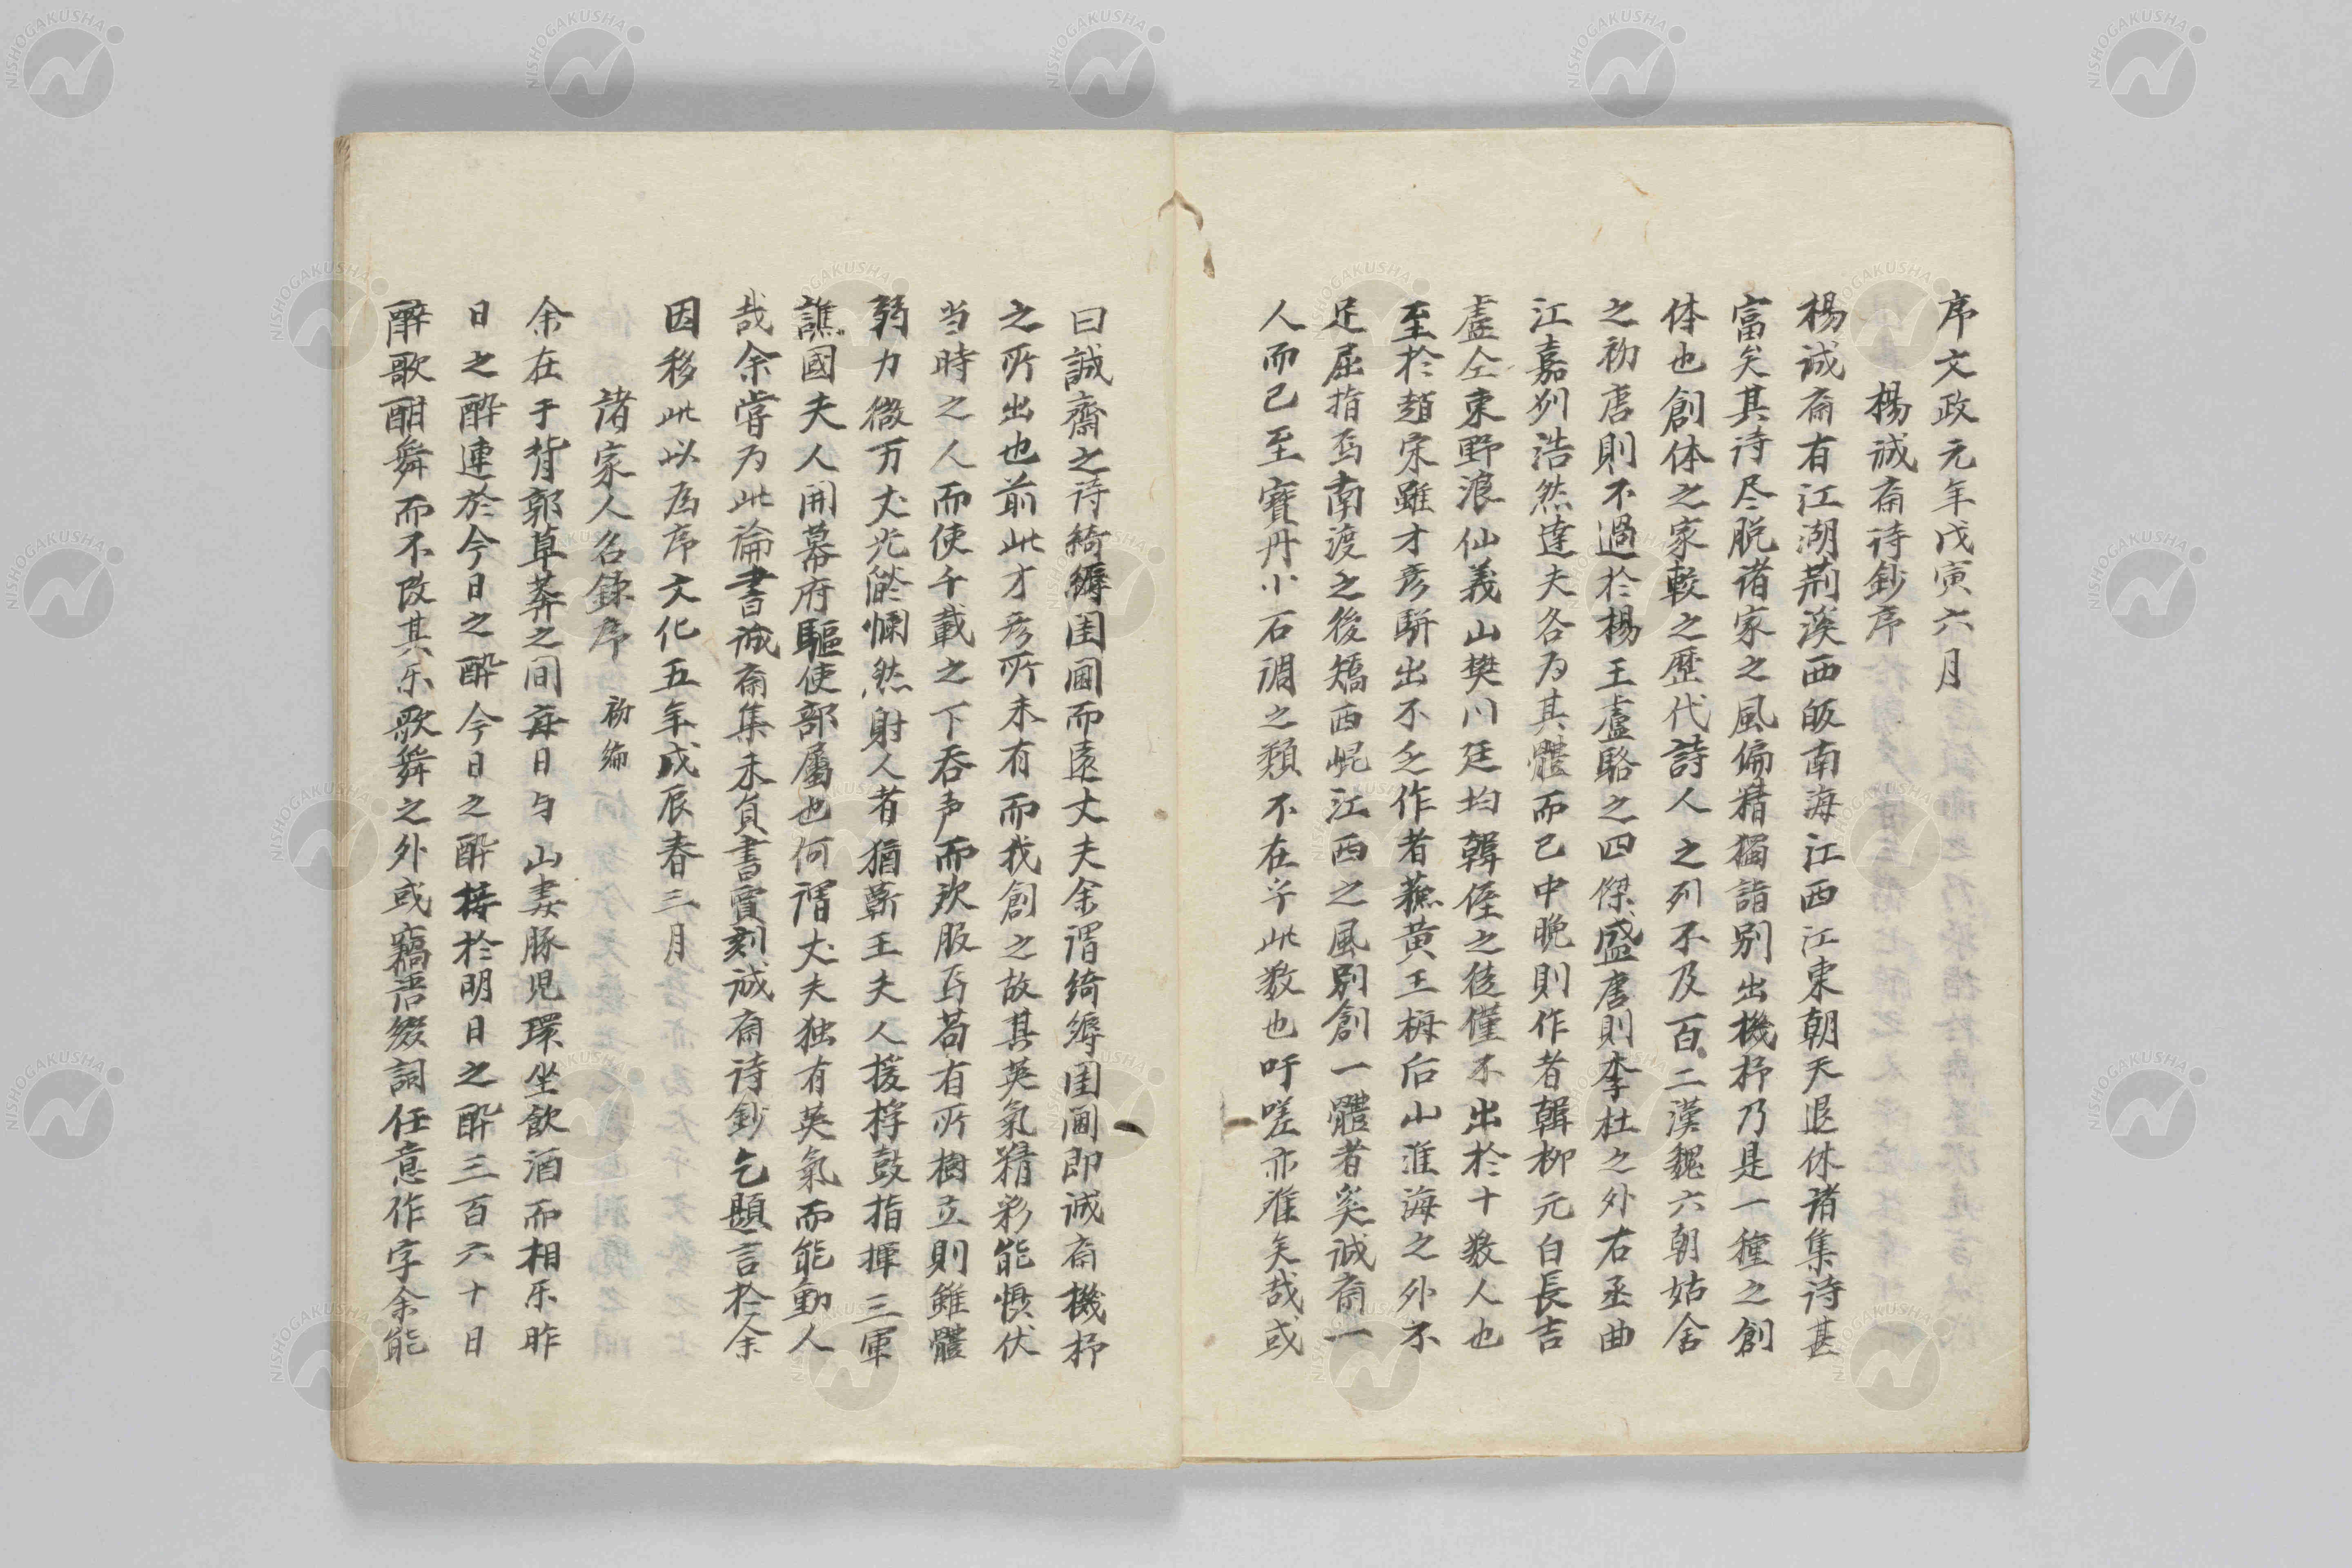 序文政元年戊寅六月
楊誠斎诗鈔序
楊誠斎有江湖荊溪西皈南海江西江東朝天退休诸集诗甚
富矣其诗尽脱诸家之風偏精獨詣别出機杼乃是一種之創
体也創体之家較之歷代詩人之列不及百二漢魏六朝姑舍
之初唐則不過於楊王盧駱之四傑盛唐則李杜之外右丞曲
江嘉列浩然達夫各为其體而已中晚則作者韓柳元白長吉
盧仝東野浪仙義山樊川廷均韓偓之徒僅不出於十数人也
至於趙宋雖才彦駢出不乏作者蘓黄王梅后山淮海之外不
足屈指焉南渡之後矯西崐江西之風别創一體者奚誠斎一
人而已至寳丹小石調之類不在于此数也吁嗟亦难矣哉或
曰誠齋之诗綺縟閨閫而遠丈夫余谓綺縟閨閫即诚斎機杼
之所出也前此才彦所未有而我創之故其英氣精彩能慑伏
当時之人而使千載之下呑声而欢服焉苟有所樹立則雖體
弱力微万丈光燄爛然射人者猶蘄王夫人援桴鼓指揮三軍
譙國夫人開幕府驅使部屬也何谓丈夫独有英氣而能動人
哉余嘗为此論書诚斎集末貟書賈刻诚斎诗鈔乞題言於余
因移此以為序文化五年戊辰春三月
諸家人名録序 初编
余在于背郭草莽之间每日与山妻豚児環坐飲酒而相乐昨
日之酔連於今日之酔今日之酔接於明日之酔三百六十日
酔歌酣舞而不改其乐歌舞之外或竊语綴詞任意作字余能